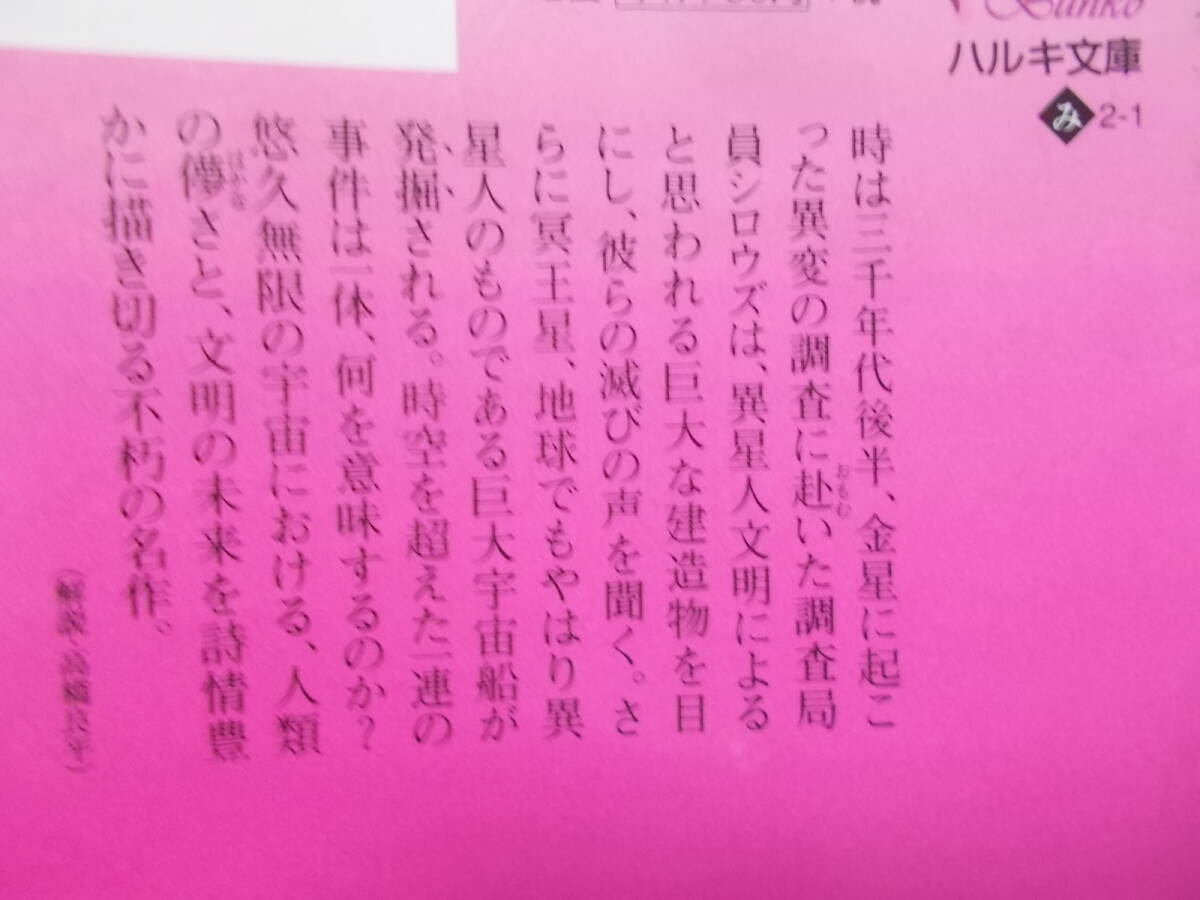 Bunko
ハルキ文庫
み 2-1
時は三千年代後半、金星に起こ
った異変の調査に赴いた調査局
おもむ
員シロウズは、異星人文明による
と思われる巨大な建造物を目
にし、彼らの滅びの声を聞く。さ
らに冥王星、地球でもやはり異
星人のものである巨大宇宙船が
発掘される。時空を超えた一連の
事件は一体、何を意味するのか?
悠久無限の宇宙における、人類
の儚さと、文明の未来を詩情豊
はかな
かに描き切る不朽の名作。
(解説・高橋良平)